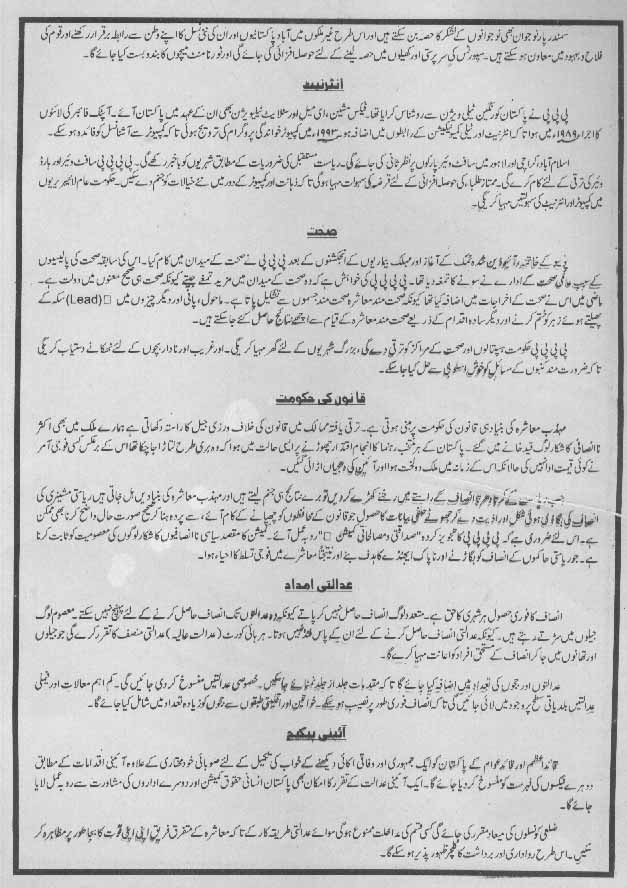 سمندر پار نوجوان بھی نوجوانوں کے لشکر کا حصہ بن سکتے ہیں اور اس طرح غیر ملکوں میں آباد پاکستانیوں اور ان کی نئی نسل کا اپنے وطن سے رابطہ برقرار رکھنے اور قوم کی
فلاح و بہبود میں معاون ہو سکتے ہیں۔ سپورٹس کی سرپرستی اور کھیلوں میں حصہ لینے کے لئے حوصلہ افزائی کی جائے گی اور ٹورنامنٹ میچوں کا بندوبست کیا جائے گا۔
انٹرنیٹ
پی پی پی نے پاکستان کو رنگین ٹیلی ویژن سے روشناس کرایا تھا۔ فیکس مشین، ای میل اور سٹلائیٹ ٹیلیویژن بھی ان کے عہد میں پاکستان آئے۔ آپٹک فائبر کی لائنوں
کا اجراء ۱۹۸۹ء میں ہوا تاکہ انٹرنیٹ اور ٹیلی کمیونیکیشن کے رابطوں میں اضافہ ہو۔ ۱۹۹۳ء میں کمپیوٹر خواندگی پروگرام کی ترویج ہوئی تاکہ کمپیوٹر سے آشنا نسل کو فائدہ ہو سکے۔
اسلام آباد، کراچی اور لاہور میں سافٹ وئیر پارکوں پر نظر ثانی کی جائے گی۔ ریاست مستقبل کی ضروریات کے مطابق شہریوں کو باخبر رکھے گی۔ پی پی پی پی سافٹ وئیر اور ہارڈ
وئیر کی ترقی کے لئے کام کرے گی۔ ممتاز طلباء کی حوصلہ افزائی کے لئے قرضہ کی سہولت مہیا ہو گی تاکہ ذہانت اور کمپیوٹر کے دور میں نئے خیالات کو جنم دے سکیں۔ حکومت عام لائبریریوں
میں کمپیوٹر اور انٹرنیٹ کی سہولتیں مہیا کریگی۔
صحت
پولیو کے خاتمہ، آیوڈین شدہ نمک کے آغاز اور مہلک بیماریوں کے انجکشنوں کے بعد پی پی پی نے صحت کے میدان میں کام کیا۔ اس کی سابقہ صحت کی پالیسیوں
کے سبب عالمی صحت کے ادارے نے سونے کا تمغہ دیا تھا۔ پی پی پی پی کی خواہش ہے کہ وہ صحت کے میدان میں مزید تمغے جیتے کیونکہ صحت ہی صحیح معنوں میں دولت ہے۔
ماضی میں اس نے صحت کے اخراجات میں اضافہ کیا تھا کیونکہ صحت مند معاشرہ صحت مند جسموں سے تشکیل پاتا ہے۔ ماحول، پانی اور دیگر چیزوں میں (Lead) سکہ کے
پھیلتے ہوئے زہر کو ختم کرنے اور دیگر سادہ اقدام کے ذریعے صحت مند معاشرہ کے قیام سے اچھے نتائج حاصل کئے جا سکتے ہیں۔
پی پی پی پی حکومت ہسپتالوں اور صحت کے مراکز کو ترقی دے گی، بزرگ شہریوں کے لئے گھر مہیا کریگی۔ اور غریب اور نادار بچوں کے لئے ٹھکانے دستیاب کریگی
تاکہ ضرورت مند کنبوں کے مسائل کو خوش اسلوبی سے حل کیا جا سکے۔
قانون کی حکومت
مہذب معاشرہ کی بنیاد ہی قانون کی حکومت پر مبنی ہوتی ہے۔ ترقی یافتہ ممالک میں قانون کی خلاف ورزی جیل کا راستہ دکھاتی ہے ہمارے ملک میں بھی اکثر
ناانصافی کا شکار لوگ قید خانے میں گئے۔ پاکستان کے ہر منتخب رہنما کا انجام اقتدار چھوڑنے پر ایسی حالت میں ہوا کہ وہ بری طرح لتاڑا جا چکا تھا اس کے برعکس کسی فوجی آمر
نے کوئی قیمت ادا نہیں کی حالانکہ اس کے زمانہ میں ملک دولخت ہوا اور آئین کی دھجیاں اڑائی گئیں۔
جب ریاست کے کرتا دھرتا انصاف کے راستے میں رخنے کھڑے کر دیں تو برے نتائج ہی جنم لیتے ہیں اور مہذب معاشرہ کی بنیادیں ہل جاتی ہیں ریاستی مشینری کی
انصاف کی بگاڑی ہوئی شکل اور اذیت دے کر جھوٹے حلفی بیانات کا حصول جو قانون کے محافظوں کو چھپانے کے کام آئے، سے پردہ ہٹا کر صحیح صورت حال واضح کرنا بھی ممکن
ہے۔ اس لئے ضروری ہے کہ پی پی پی پی کا تجویز کردہ "صداقتی و مصالحاتی کمیشن" روبہ عمل آئے۔ کمیشن کا مقصد سیاسی ناانصافیوں کا شکار لوگوں کی معصومیت کو ثابت کرنا
ہے۔ جو ریاستی حاکموں کے انصاف کو بگاڑنے اور ناپاک ایجنڈے کا ہدف بنے اور نتیجتاً معاشرے میں فوجی تسلط کا احیاء ہوا۔
عدالتی امداد
انصاف کا فوری حصول ہر شہری کا حق ہے۔ متعدد لوگ انصاف حاصل نہیں کر پاتے کیونکہ وہ عدالتوں تک انصاف حاصل کرنے کے لئے پہنچ نہیں سکتے۔ معصوم لوگ
جیلوں میں سڑتے رہتے ہیں۔ کیونکہ عدالتی انصاف حاصل کرنے کے لئے ان کے پاس فنڈ نہیں ہوتا۔ ہر ہائی کورٹ (عدالت عالیہ) عدالتی منصف کا تقرر کرے گی جو جیلوں
اور تھانوں میں جا کر انصاف کے مستحق افراد کو اعانت مہیا کرے گا۔
عدالتوں اور ججوں کی تعداد میں اضافہ کیا جائے گا تاکہ مقدمات جلد از جلد نمٹائے جا سکیں۔ خصوصی عدالتیں منسوخ کر دی جائیں گی۔ کم اہم معاملات اور فیملی
عدالتیں بلدیاتی سطح پر وجود میں لائی جائیں گی تاکہ انصاف فوری طور پر نصیب ہو سکے۔ خواتین اور اقلیتی طبقوں سے ججوں کو زیادہ تعداد میں شامل کیا جائے گا۔
آئینی پیکیج
قائداعظم اور قائدعوام کے پاکستان کو ایک جمہوری اور وفاقی اکائی دیکھنے کے خواب کی تکمیل کے لئے صوبائی خودمختاری کے علاوہ آئینی اقدامات کے مطابق
دوہرے ٹیکسوں کی فہرست کو منسوخ کر دیا جائے گا۔ ایک آئینی عدالت کے تقرر کا امکان بھی پاکستان انسانی حقوق کمیشن اور دوسرے اداروں کی مشاورت سے روبہ عمل لایا
جائے گا۔
ضلعی کونسلوں کی میعاد مقرر کی جائے گی کسی قسم کی مداخلت ممنوع ہو گی سوائے عدالتی طریقہ کار کے تاکہ معاشرہ کے متفرق فریق اپنی اپنی قوت کا بجا طور پر مظاہرہ کر
سکیں۔ اس طرح رواداری اور برداشت کا کلچر ظہور پذیر ہو سکے گا۔